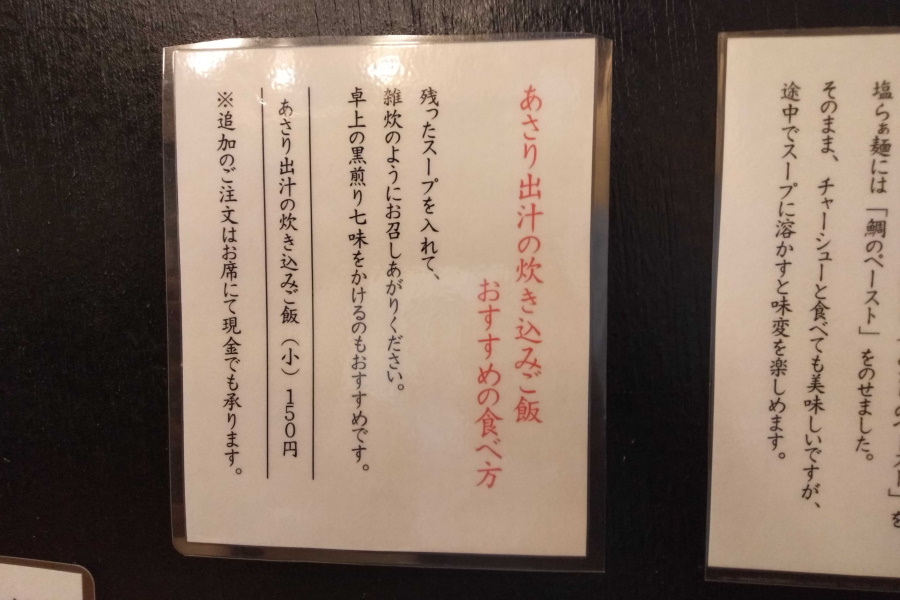 あさり出汁の炊き込みご飯
おすすめの食べ方
残ったスープを入れて、
雑炊のようにお召しあがりください。
卓上の黒煎り七味をかけるのもおすすめです。
あさり出汁の炊き込みご飯（小）150円
※追加のご注文はお席にて現金でも承ります。
塩らぁ麺には「鯛のペースト」をのせました。
そのまま、チャーシューと食べても美味しいですが、
途中でスープに溶かすと味変を楽しめます。